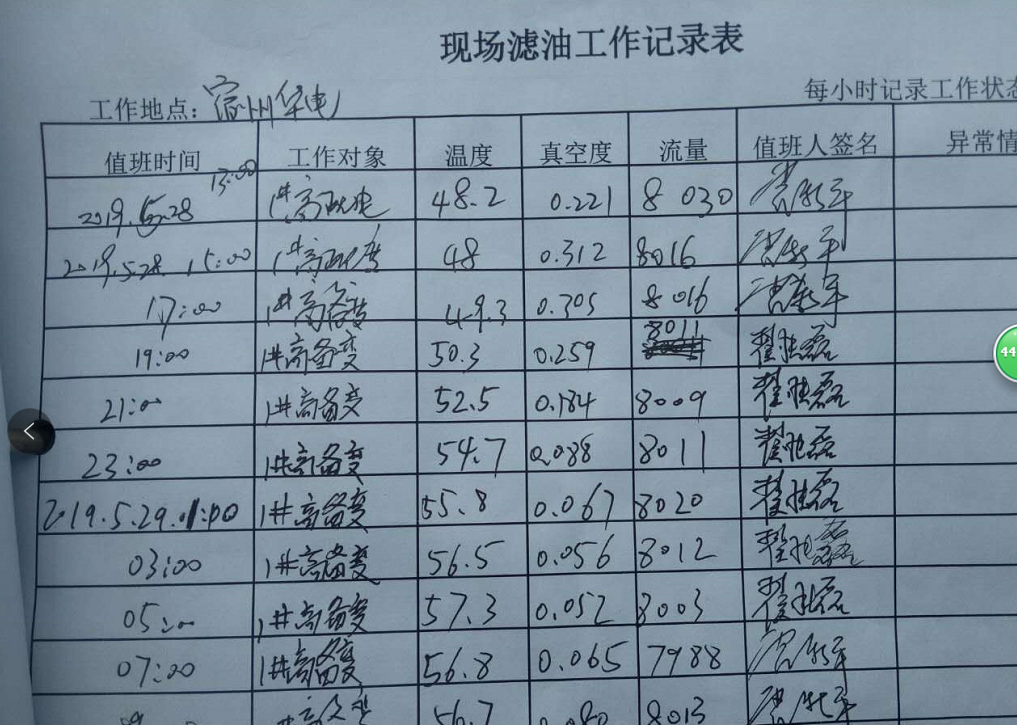 现场滤油工作记录表
工作地点：宿州华电
每小时记录工作状态
值班时间 工作对象 温度 真空度 流量 值班人签名 异常情
2019.5.28 13:00 1#高 48.2 0.221 8030
2019.5.28 15:00 1#高 48 0.312 8016
17:00 1#高备变 49.3 0.305 8016
19:00 1#高备变 50.3 0.259 8011
21:00 1#高备变 52.5 0.184 8009
23:00 1#高备变 54.7 0.088 8011
2019.5.29.01:00 1#高备变 55.8 0.067 8020
03:00 1#高备变 56.5 0.056 8012
05:00 1#高备变 57.3 0.052 8003
07:00 1#高备变 56.8 0.065 7988
56.7 0.080 8013
44